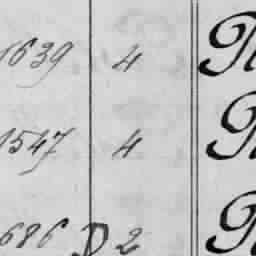 1639 4
1547 4
686 D 2